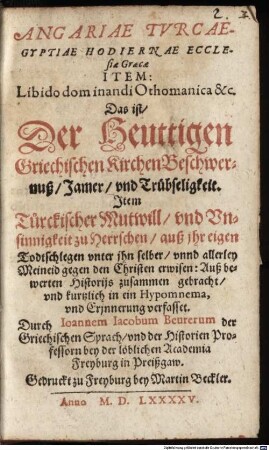 2.
ANGARIAE TVRCAE-
GYPTIAE HODIERNAE ECCLE-
siæ Græcæ
ITEM:
Libido dominandi Othomanica &c.
Das ist/
Der Heuttigen
Griechischen Kirchen Beschwer-
nuß/ Jamer/ vnd Trübseligkeit.
Item
Türckischer Mutwill/ vnd Vn-
sinnigkeit zu Herrschen/ auß jhr eigen
Todtschlegen vnter jhn selber/ vnnd allerley
Meineid gegen den Christen erwisen: Auß be-
werten Historijs zusammen gebracht/
vnd kurtzlich in ein Hypomnema,
vnd Erjnnerung verfasset.
Durch Ioannem Iacobum Beurerum der
Griechischen Sprach/ vnd der Historien Pro-
fessorn bey der löblichen Academia
Freyburg in Preißgaw.
Gedruckt zu Freyburg bey Martin Beckler.
Anno M. D. LXXXXV.